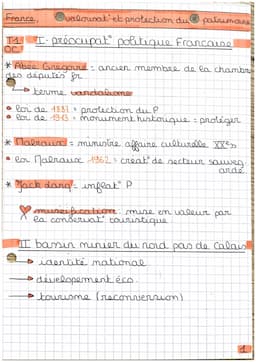 France, valorisat° et protection du patrimoine
T1 OC1 I- préocupat° politique Francaise
* Abée Grégoire = ancien membre de la chambre
des députés fr
→ terme vandalisme
• loi de 1881 = protection du P
• loi de 1913 = monument historique = protéger
* Malraux = ministre affaire culturelle XXe s
• loi Malraux 1962 = créat° de secteur sauveg
ardé.
* Jack Lang = inflat° P
muséification : mise en valeur par
la conservat° touristique
II bassin minier du nord pas de Calais
→ identité national
→ dévelopement éco.
→ tourisme (reconversion)
1